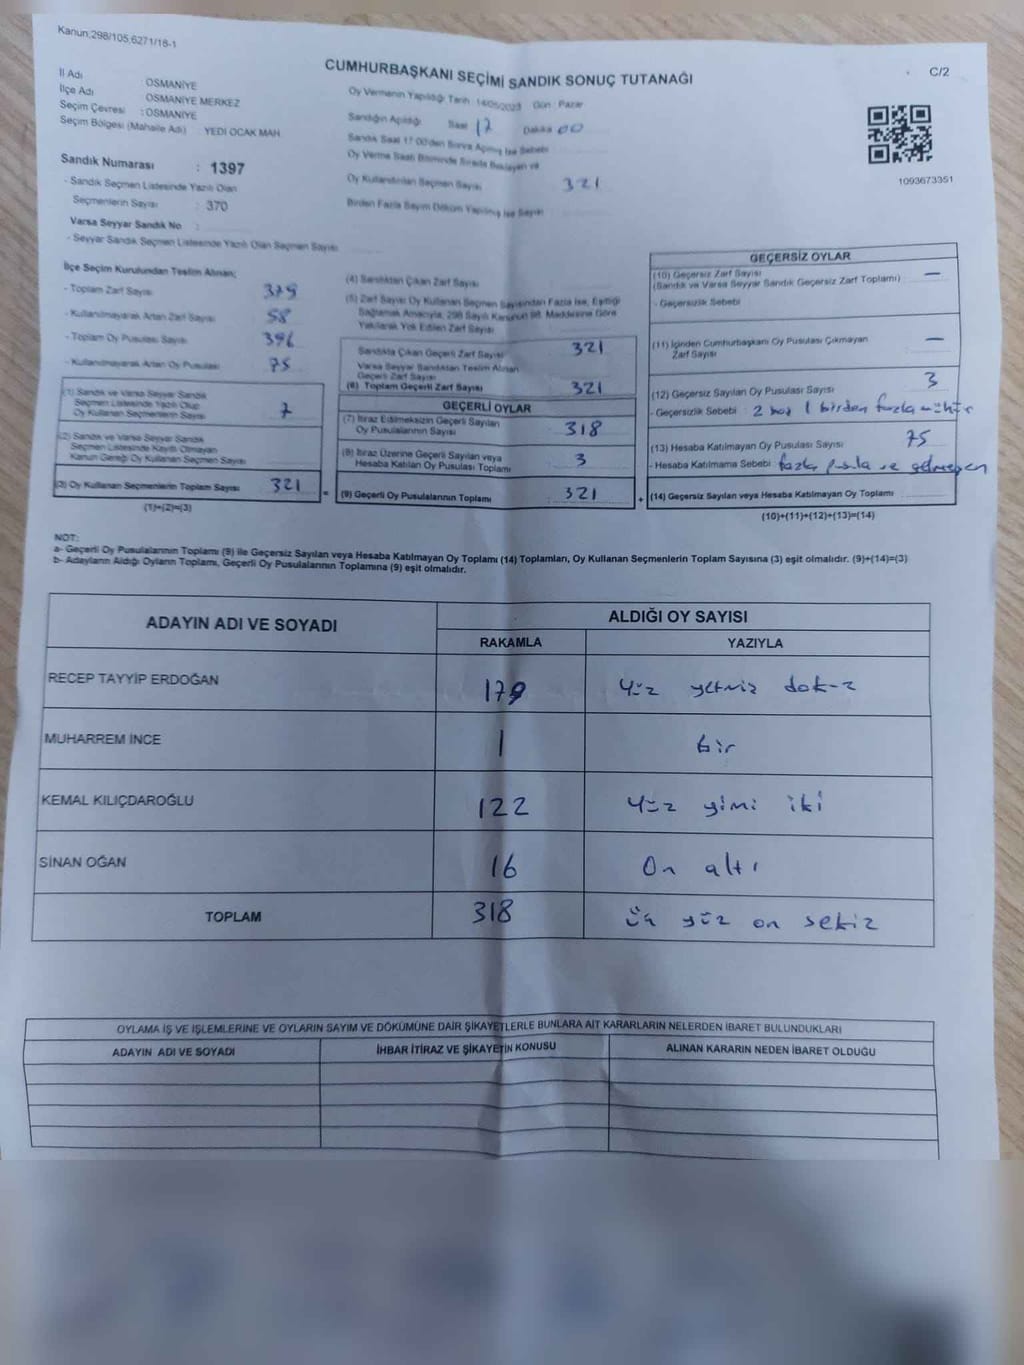 Kanun;298/105;6271/18-1
CUMHURBAŞKANI SEÇİMİ SANDIK SONUÇ TUTANAĞI
C/2
İl Adı OSMANİYE
İlçe Adı OSMANİYE MERKEZ
Seçim Çevresi : OSMANİYE
Seçim Bölgesi (Mahalle Adı) : YEDİ OCAK MAH
Oy Vermenin Yapıldığı Tarih : 14/05/2023 Gün : Pazar
Sandığın Açıldığı Saat 17 Dakika 00
Sandık Saat 17.00'den Sonra Açılmış İse Sebebi
Oy Verme Saati Bitiminde Sırada Bekleyen ve
Oy Kullandırılan Seçmen Sayısı 321
Birden Fazla Sayım Döküm Yapılmış İse Sayısı
1093673351
Sandık Numarası : 1397
- Sandık Seçmen Listesinde Yazılı Olan
Seçmenlerin Sayısı : 370
Varsa Seyyar Sandık No :
- Seyyar Sandık Seçmen Listesinde Yazılı Olan Seçmen Sayısı
İlçe Seçim Kurulundan Teslim Alınan;
- Toplam Zarf Sayısı 379
- Kullanılmayarak Artan Zarf Sayısı 58
- Toplam Oy Pusulası Sayısı 396
- Kullanılmayarak Artan Oy Pusulası 75
(1) Sandık ve Varsa Seyyar Sandık
Seçmen Listesinde Yazılı Olup
Oy Kullanan Seçmenlerin Sayısı 7
(2) Sandık ve Varsa Seyyar Sandık
Seçmen Listesinde Kayıtlı Olmayan
Kanun Gereği Oy Kullanan Seçmen Sayısı
(3) Oy Kullanan Seçmenlerin Toplam Sayısı 321
(1)+(2)=(3)
(4) Sandıktan Çıkan Zarf Sayısı
(5) Zarf Sayısı Oy Kullanan Seçmen Sayısından Fazla İse, Eşitliği
Sağlamak Amacıyla, 298 Sayılı Kanunun 98. Maddesine Göre
Yakılarak Yok Edilen Zarf Sayısı
Sandıkta Çıkan Geçerli Zarf Sayısı 321
Varsa Seyyar Sandıktan Teslim Alınan
Geçerli Zarf Sayısı
(6) Toplam Geçerli Zarf Sayısı 321
GEÇERLİ OYLAR
(7) İtiraz Edilmeksizin Geçerli Sayılan
Oy Pusulalarının Sayısı 318
(8) İtiraz Üzerine Geçerli Sayılan veya
Hesaba Katılan Oy Pusulası Toplamı 3
= (9) Geçerli Oy Pusulalarının Toplamı 321 +
GEÇERSİZ OYLAR
(10) Geçersiz Zarf Sayısı —
(Sandık ve Varsa Seyyar Sandık Geçersiz Zarf Toplamı)
- Geçersizlik Sebebi
(11) İçinden Cumhurbaşkanı Oy Pusulası Çıkmayan —
Zarf Sayısı
(12) Geçersiz Sayılan Oy Pusulası Sayısı 3
- Geçersizlik Sebebi : 2 boş 1 birden fazla mühür
(13) Hesaba Katılmayan Oy Pusulası Sayısı 75
- Hesaba Katılmama Sebebi fazla pusula ve gelmeyen
(14) Geçersiz Sayılan veya Hesaba Katılmayan Oy Toplamı
(10)+(11)+(12)+(13)=(14)
NOT:
a- Geçerli Oy Pusulalarının Toplamı (9) ile Geçersiz Sayılan veya Hesaba Katılmayan Oy Toplamı (14) Toplamları, Oy Kullanan Seçmenlerin Toplam Sayısına (3) eşit olmalıdır. (9)+(14)=(3)
b- Adayların Aldığı Oyların Toplamı, Geçerli Oy Pusulalarının Toplamına (9) eşit olmalıdır.
ADAYIN ADI VE SOYADI
ALDIĞI OY SAYISI
RAKAMLA YAZIYLA
RECEP TAYYİP ERDOĞAN 179 Yüz yetmiş dokuz
MUHARREM İNCE 1 bir
KEMAL KILIÇDAROĞLU 122 Yüz yimi iki
SİNAN OĞAN 16 On altı
TOPLAM 318 üç yüz on sekiz
OYLAMA İŞ VE İŞLEMLERİNE VE OYLARIN SAYIM VE DÖKÜMÜNE DAİR ŞİKAYETLERLE BUNLARA AİT KARARLARIN NELERDEN İBARET BULUNDUKLARI
ADAYIN ADI VE SOYADI İHBAR İTİRAZ VE ŞİKAYETİN KONUSU ALINAN KARARIN NEDEN İBARET OLDUĞU